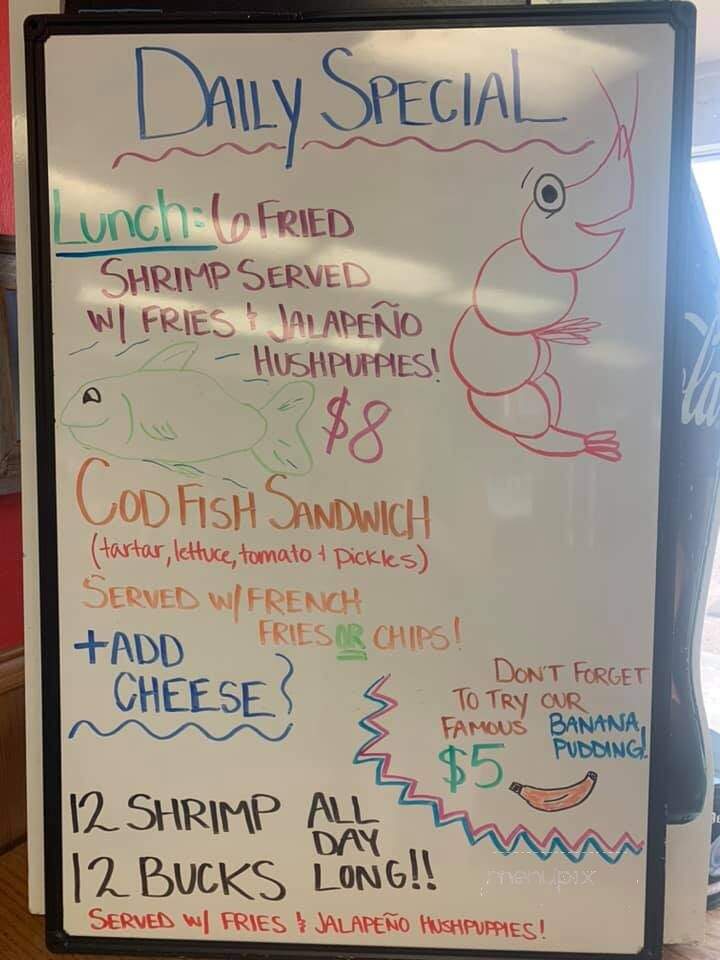 DAILY SPECIAL
Lunch: 6 FRIED
SHRIMP SERVED
W/ FRIES & JALAPEÑO
HUSHPUPPIES!
$8
COD FISH SANDWICH
(tartar, lettuce, tomato + pickles)
SERVED W/ FRENCH
FRIES OR CHIPS!
+ADD
CHEESE
DON'T FORGET
TO TRY OUR
FAMOUS BANANA
PUDDING!
$5
12 SHRIMP ALL
DAY
12 BUCKS LONG!!
SERVED W/ FRIES & JALAPEÑO HUSHPUPPIES!
menupix